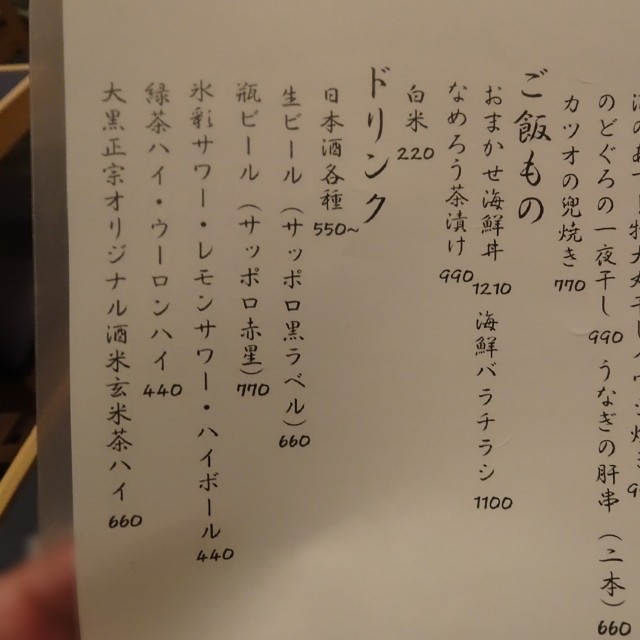 のどぐろの一夜干し 990 うなぎの肝串(二本)660
カツオの兜焼き 770
ご飯もの
おまかせ海鮮丼 1210 海鮮バラチラシ 1100
なめろう茶漬け 990
白米 220
ドリンク
日本酒各種 550~
生ビール(サッポロ黒ラベル)660
瓶ビール(サッポロ赤星)770
氷彩サワー・レモンサワー・ハイボール 440
緑茶ハイ・ウーロンハイ 440
大黒正宗オリジナル酒米玄米茶ハイ 660